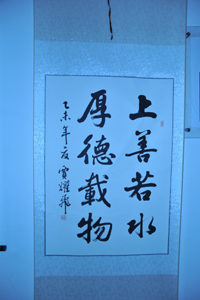 上善若水
厚德載物
乙未年夏賈耀飛